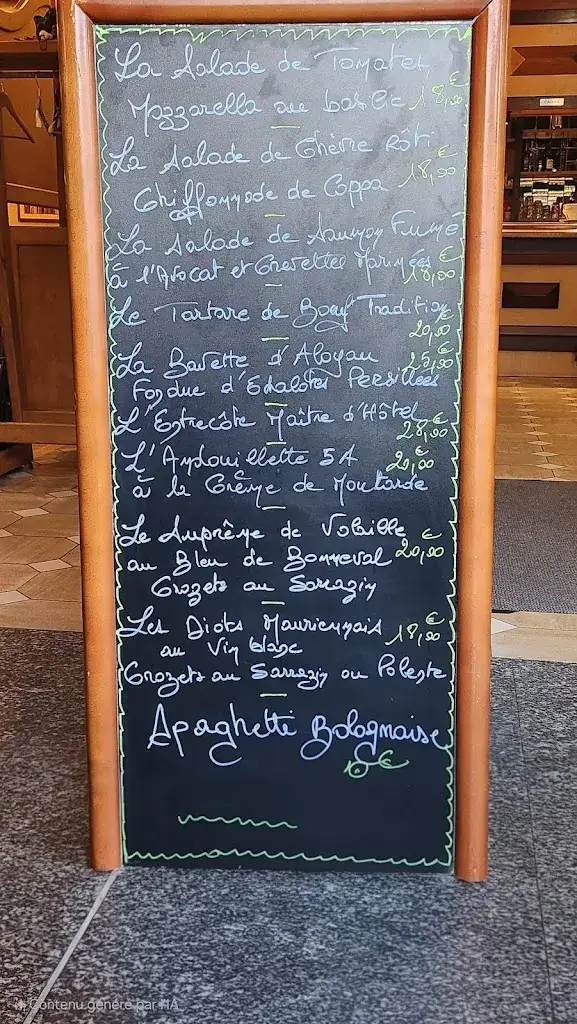 La Salade de Tomates,
Mozzarella au basilic 18,00 €
La Salade de Chèvre Rôti
Chiffonnade de Coppa 18,00 €
La Salade de Saumon Fumé
à l'Avocat et Crevettes Marinées 18,00 €
Le Tartare de Bœuf Tradition
20,00 €
La Bavette d'Aloyau 25,00 €
Fondue d'Echalotes Persillées
L'Entrecôte Maître d'Hôtel
28,00 €
L'Andouillette 5A 20,00 €
à la Crème de Moutarde
Le Suprême de Volaille
au Bleu de Bonneval 20,00 €
Crozets au Sarrazin
Les Diots Mauriennais 18,00 €
au Vin blanc
Crozets au Sarrazin ou Polente
Spaghetti Bolognaise
€
Contenu généré par l'IA